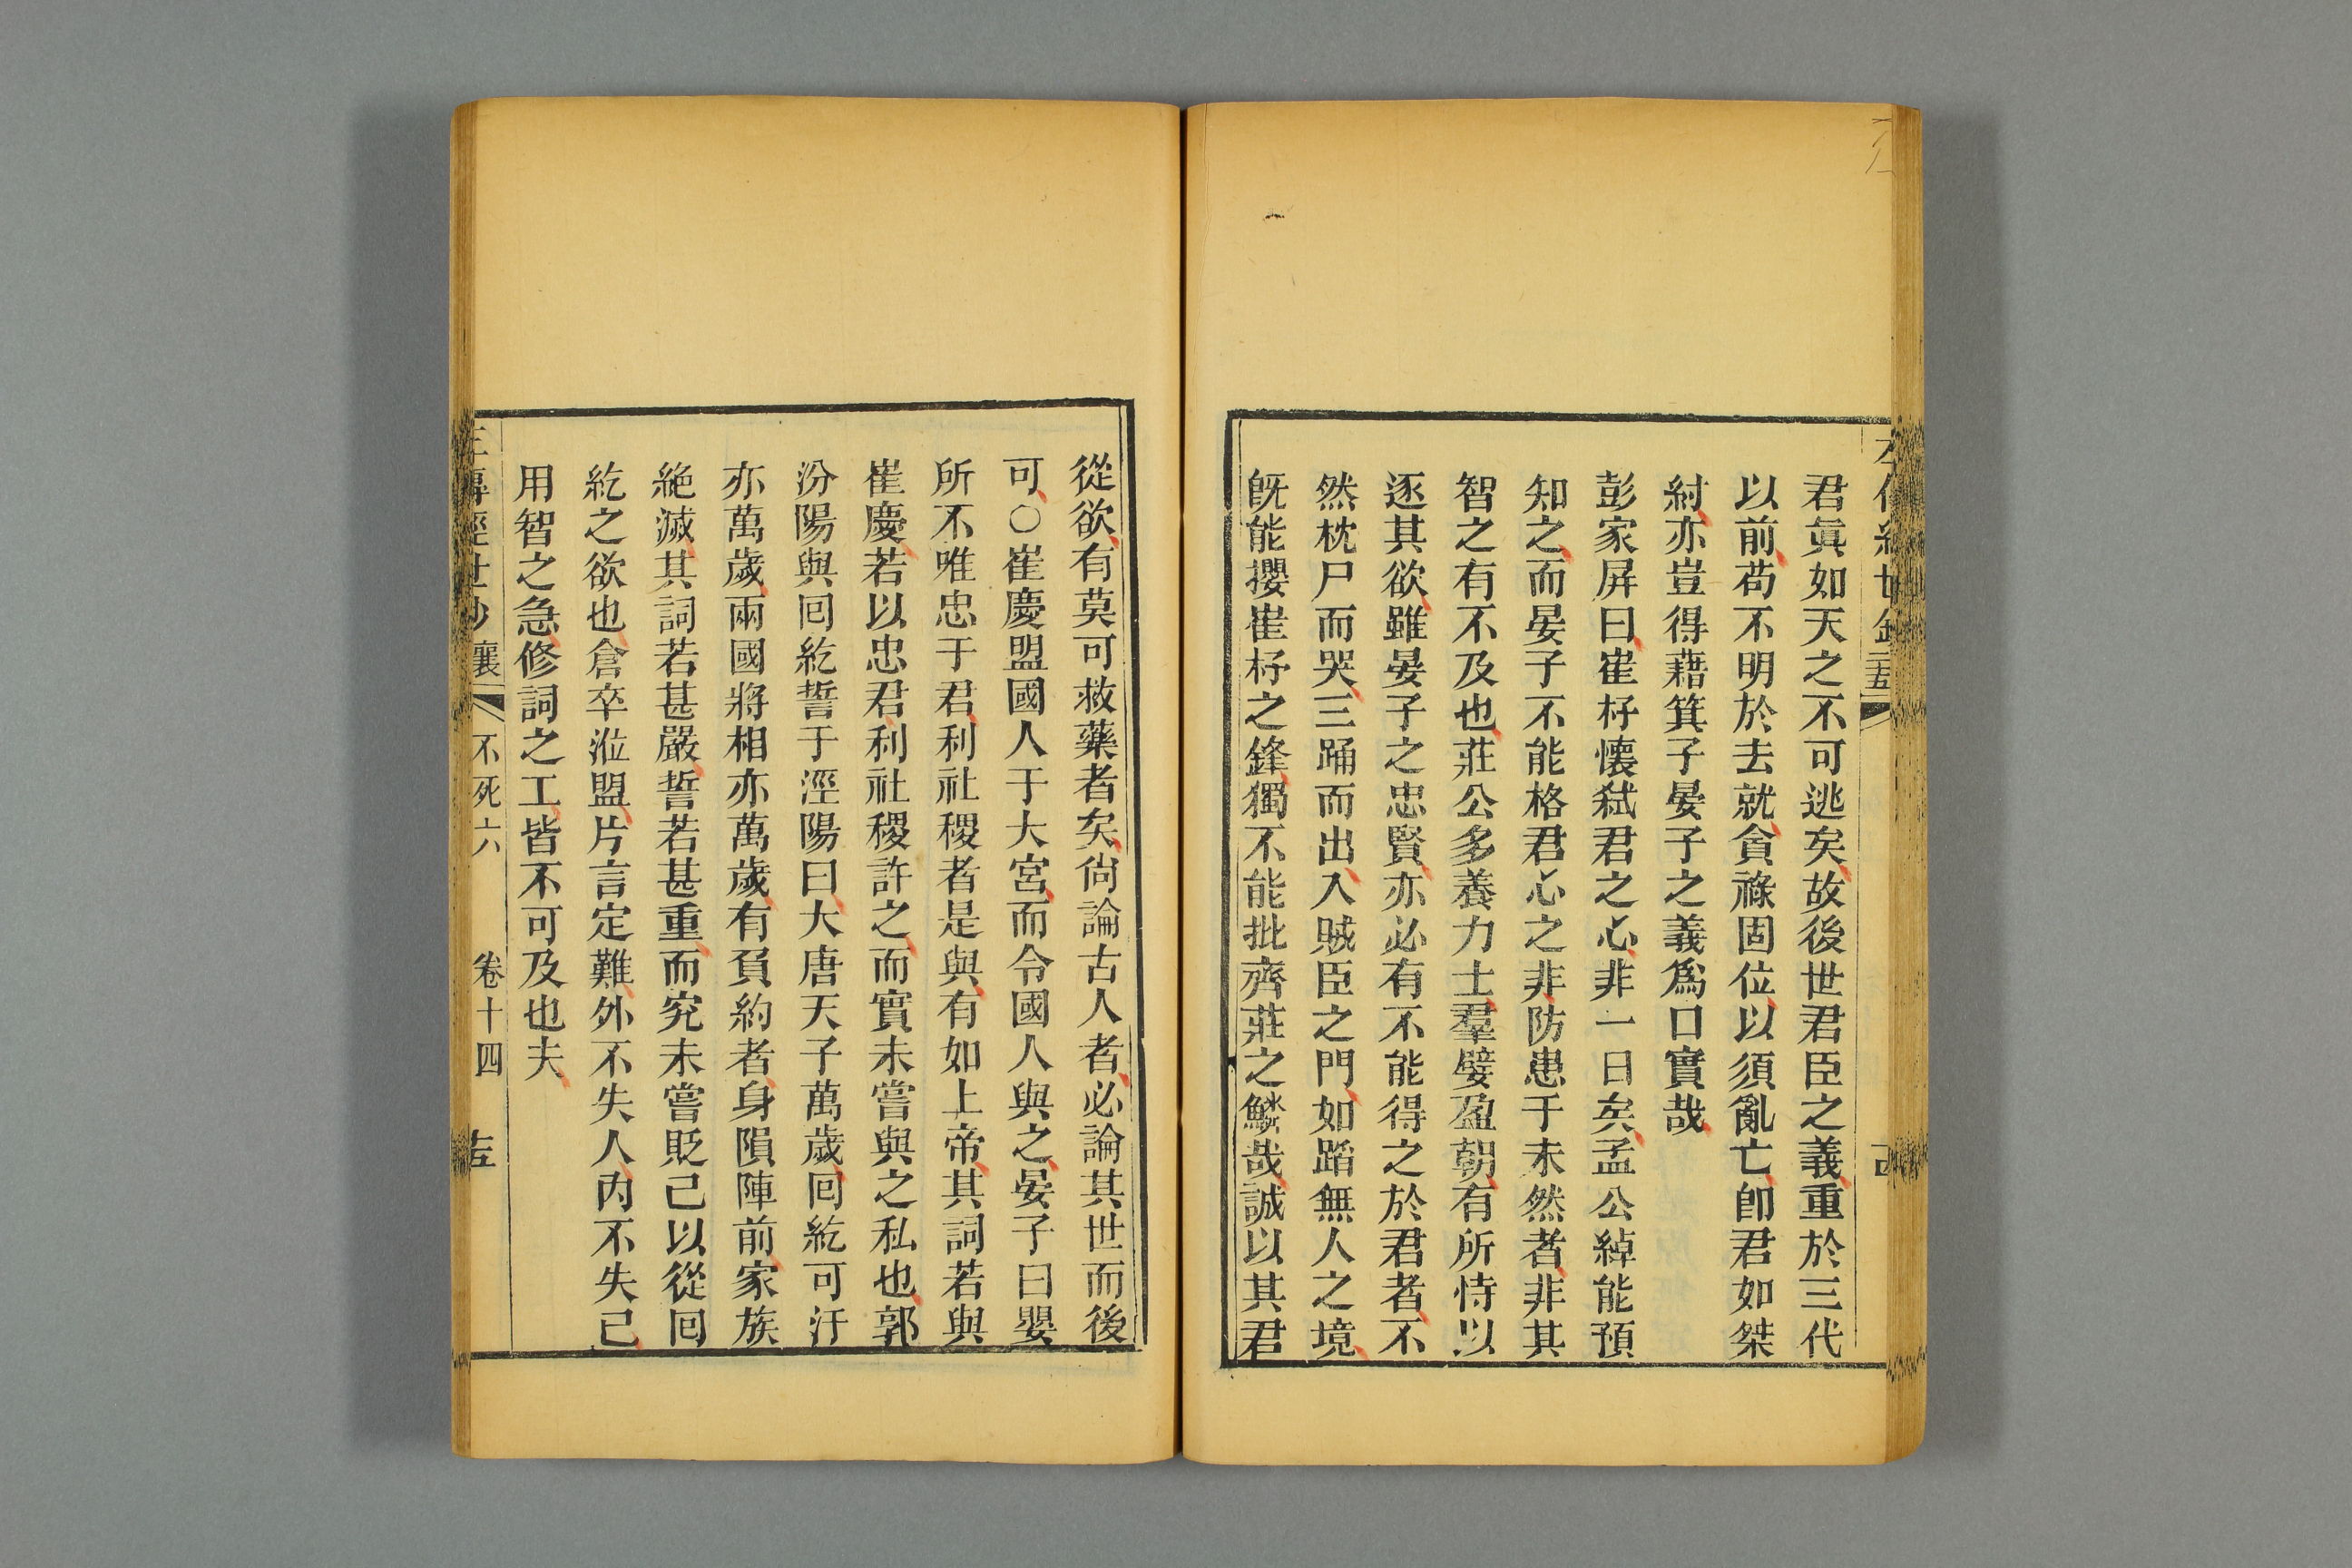 君眞如天之不可逃矣故後世君臣之義重於三代
以前苟不明於去就貪祿固位以須亂亡卽君如桀
紂亦豈得藉箕子晏子之義爲口實哉
彭家屏曰崔杼懷弑君之心非一日矣孟公綽能預
知之而晏子不能格君心之非防患于未然者非其
智之有不及也莊公多養力士羣嬖盈朝有所恃以
逐其欲雖晏子之忠賢亦必有不能得之於君者不
然枕尸而哭三踊而出入賊臣之門如蹈無人之境
旣能攖崔杼之鋒獨不能批齊莊之鱗哉誠以其君
從欲有莫可救藥者矣尙論古人者必論其世而後
可○崔慶盟國人于大宮而令國人與之晏子曰嬰
所不唯忠于君利社稷者是與有如上帝其詞若與
崔慶若以忠君利社稷許之而實未嘗與之私也郭
汾陽與回紇誓于涇陽曰大唐天子萬歲回紇可汗
亦萬歲兩國將相亦萬歲有負約者身隕陣前家族
絕滅其詞若甚嚴誓若甚重而究未嘗貶己以從回
紇之欲也倉卒涖盟片言定難外不失人內不失己
用智之急修詞之工皆不可及也夫
襄 不死六 卷十四